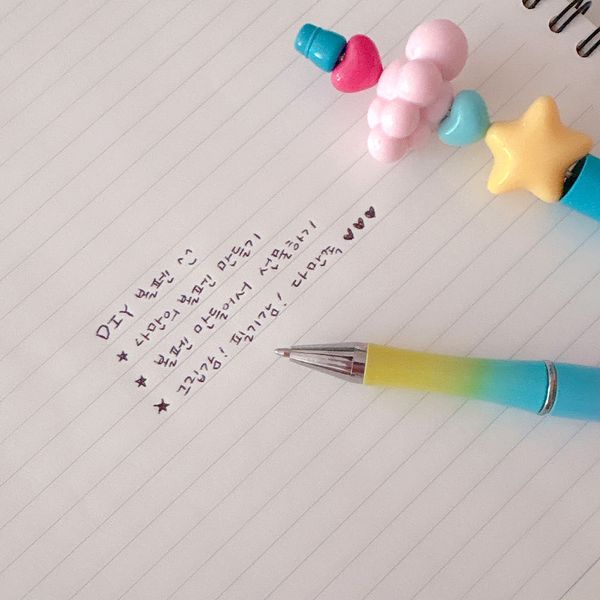 DIY 볼펜 ^^
★ 나만의 볼펜 만들기
★ 볼펜 만들어서 선물하기
★ 그립감! 필기감! 다만족 ♥♥♥